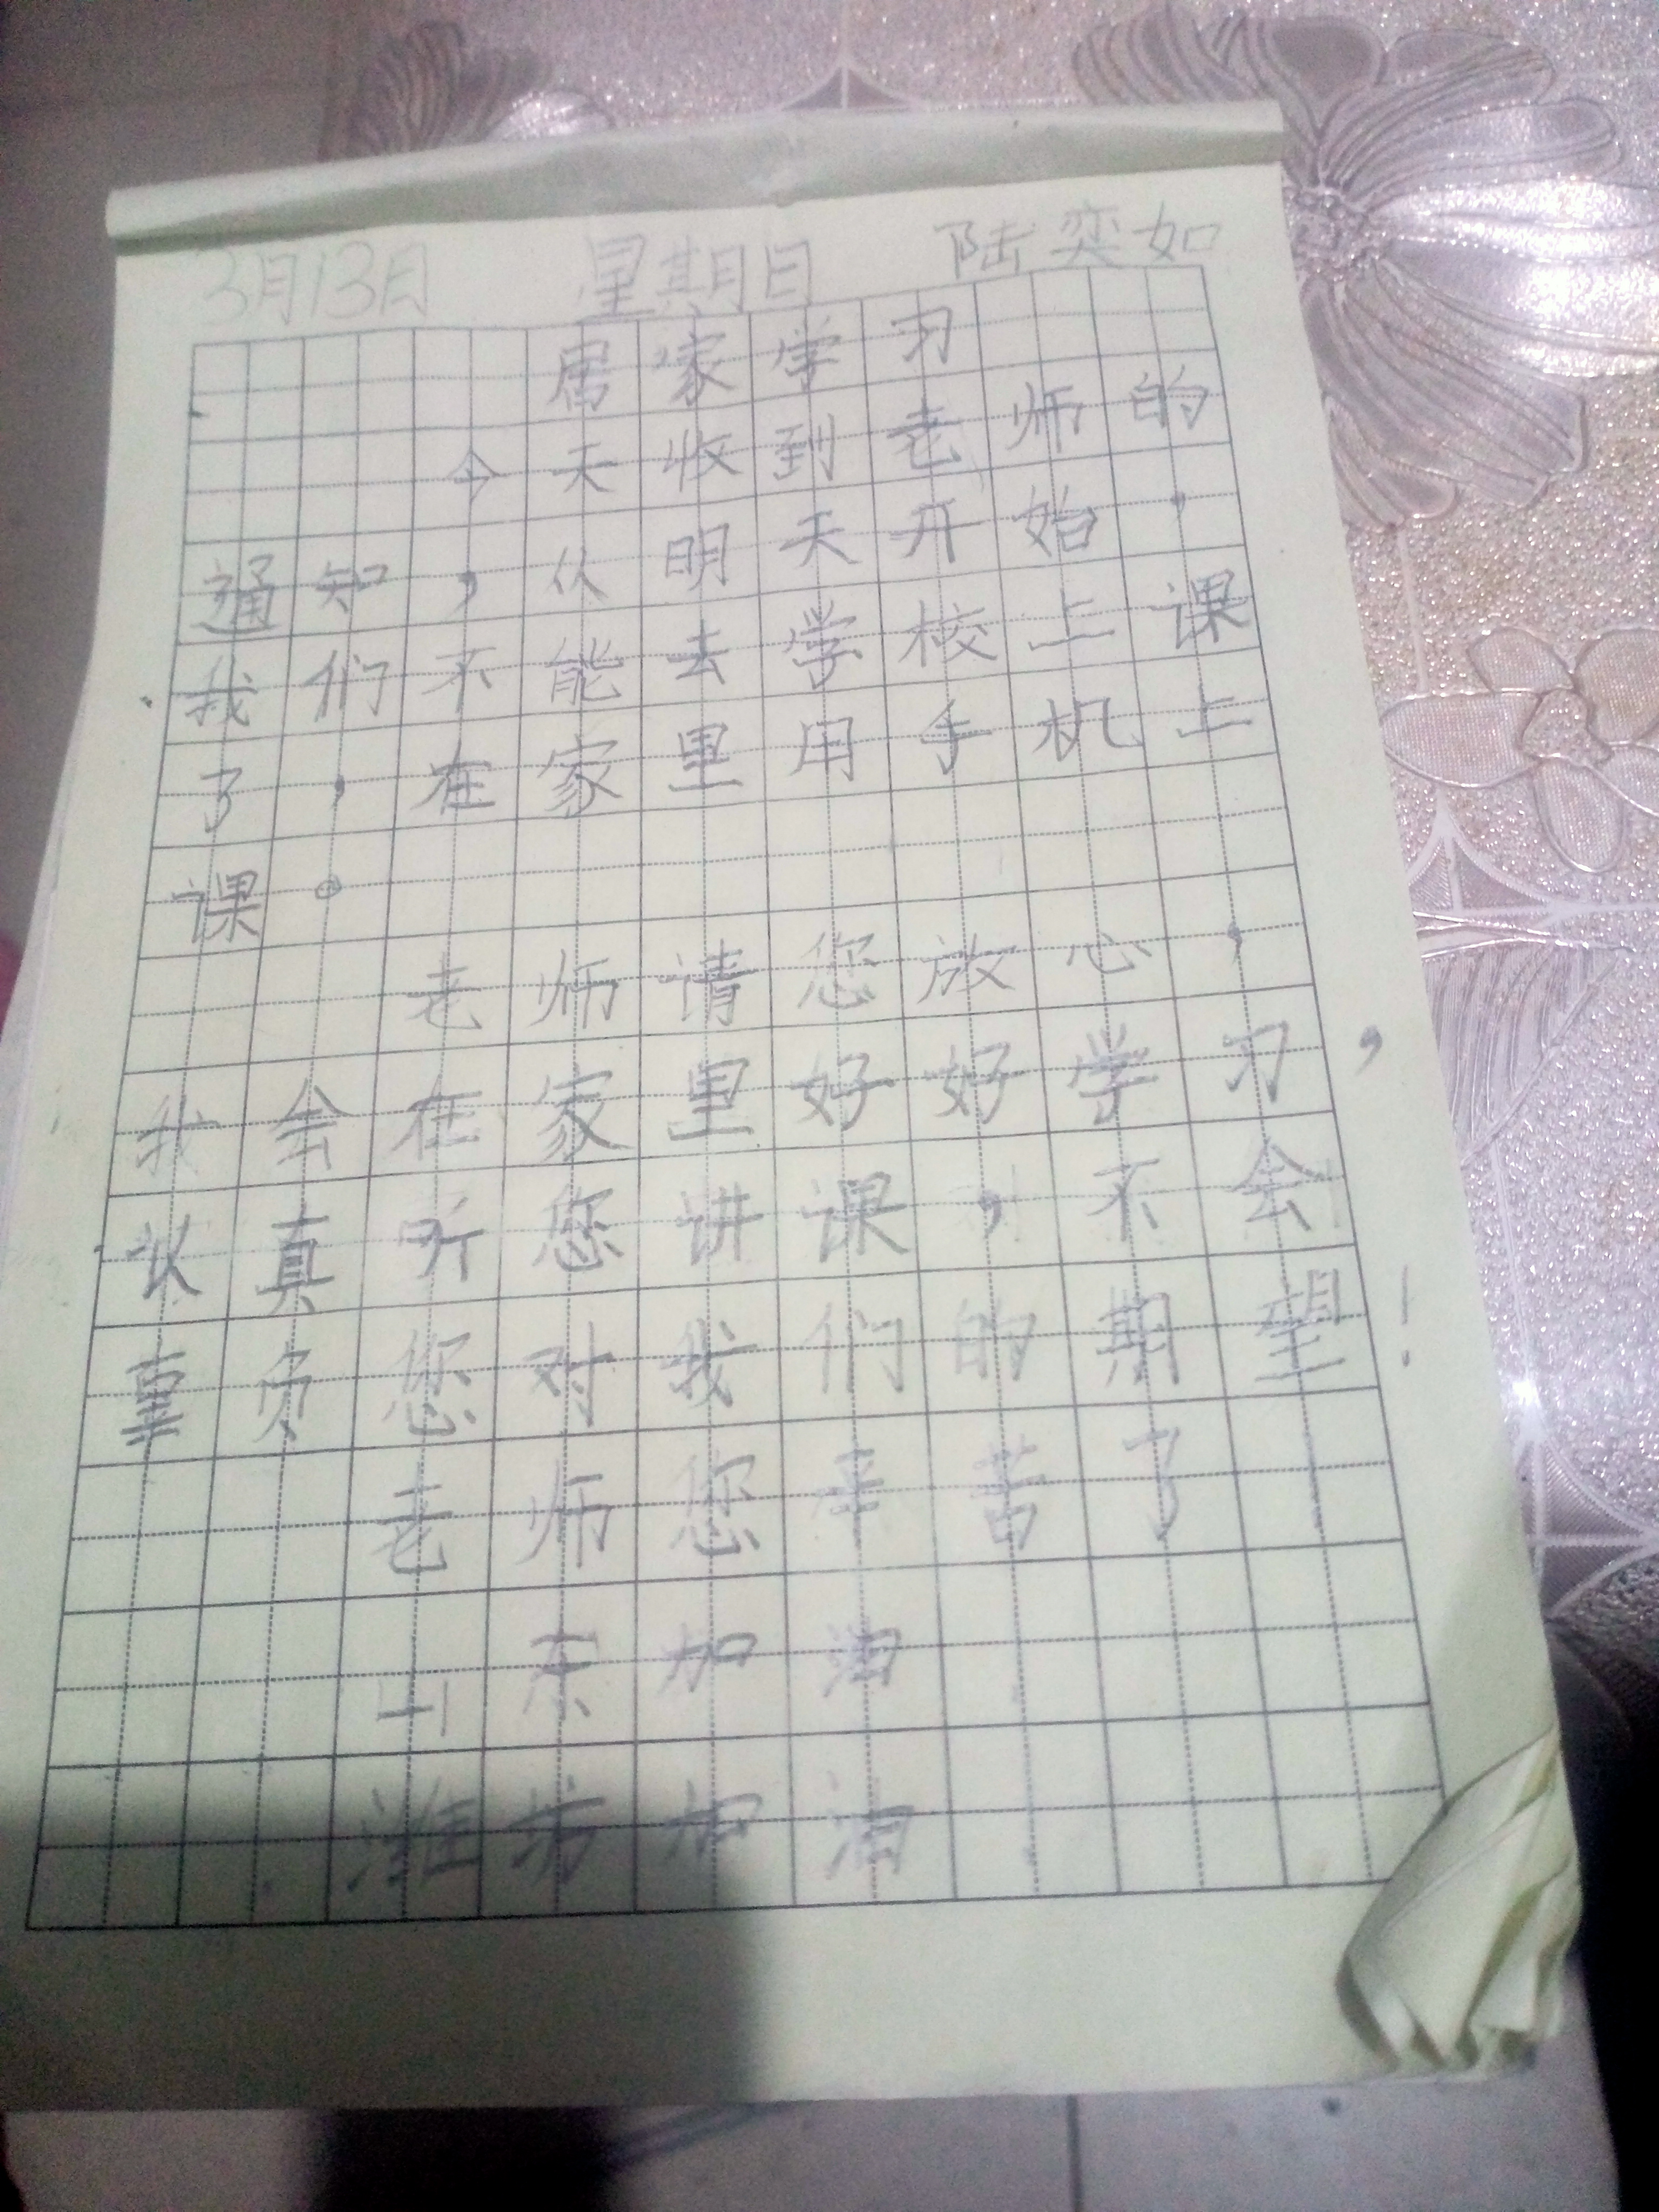 3月13日 星期日 陆奕如
居家学习
今天收到老师的
通知,从明天开始,
我们不能去学校上课
了,在家里用手机上
课。
老师请您放心,
我会在家里好好学习,
认真听您讲课,不会
辜负您对我们的期望!
老师您辛苦了!
山东加油
潍坊加油